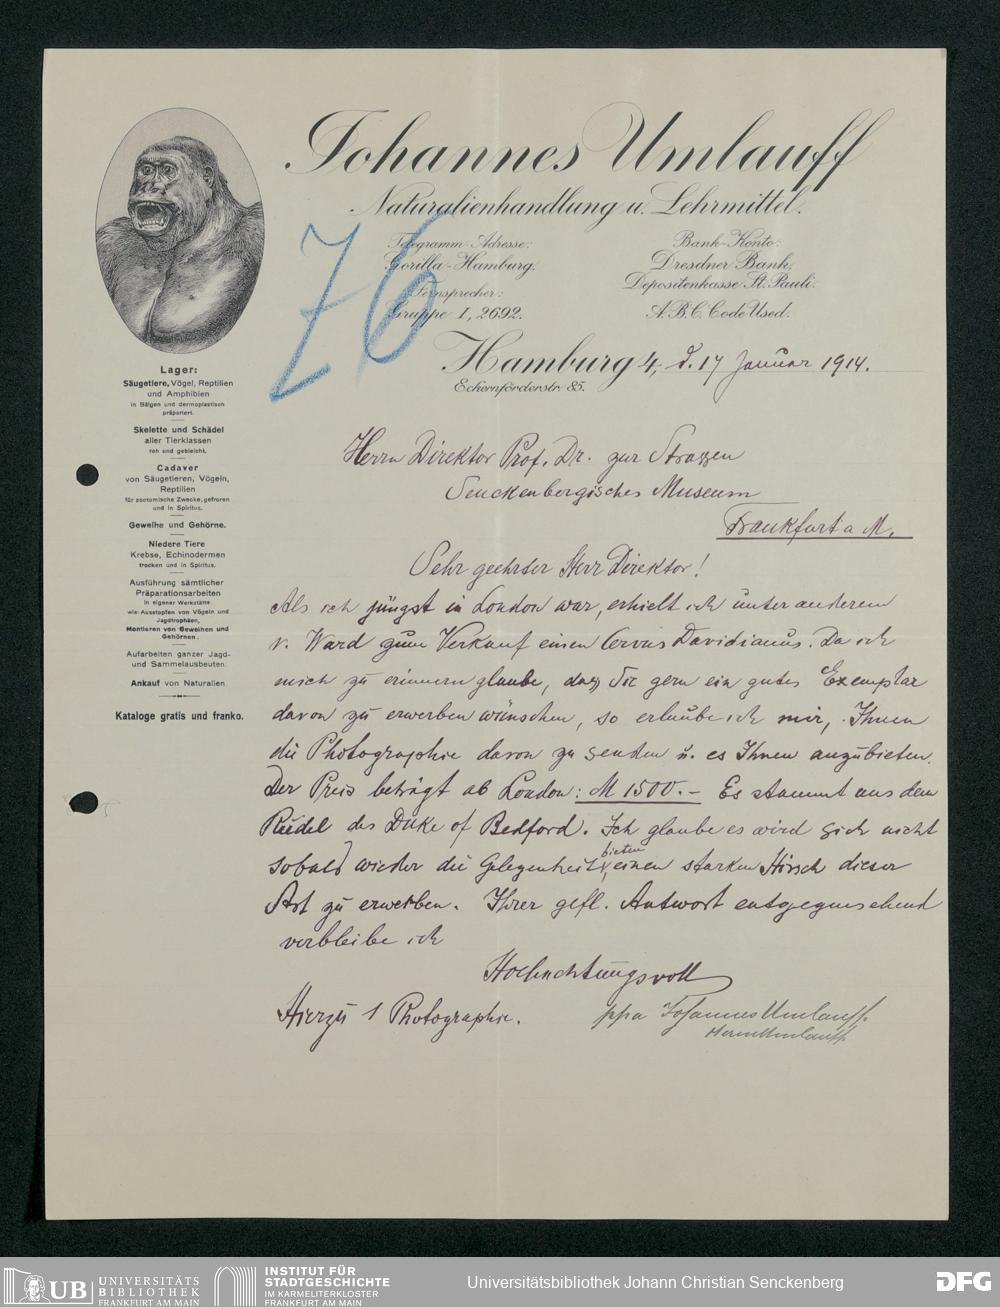 Johannes Umlauff
Naturalienhandlung u. Lehrmittel.
Telegramm-Adresse:
Gorilla-Hamburg.
Fernsprecher:
Gruppe I, 2692.
Bank-Konto:
Dresdner Bank,
Depositenkasse St. Pauli.
A.B.C. Code Used.
76
Hamburg 4, d. 17 Januar 1914.
Eckernförderstr. 85.
Lager:
Säugetiere, Vögel, Reptilien
und Amphibien
in Bälgen und dermoplastisch
präpariert.
Skelette und Schädel
aller Tierklassen
roh und gebleicht.
Cadaver
von Säugetieren, Vögeln,
Reptilien
für zootomische Zwecke, gefroren
und in Spiritus.
Geweihe und Gehörne.
Niedere Tiere
Krebse, Echinodermen
trocken und in Spiritus.
Ausführung sämtlicher
Präparationsarbeiten
in eigener Werkstätte
wie: Ausstopfen von Vögeln und
Jagdtrophäen,
Montieren von Geweihen und
Gehörnen.
Aufarbeiten ganzer Jagd-
und Sammelausbeuten.
Ankauf von Naturalien.
Kataloge gratis und franko.
Herrn Direktor Prof. Dr. zur Strassen
Senckenbergisches Museum
Frankfurt a M.
Sehr geehrter Herr Direktor!
Als ich jüngst in London war, erhielt ich unter anderem
v. Ward zum Verkauf einen Cervus Davidianus. Da ich
mich zu erinnern glaube, dass Sie gern ein gutes Exemplar
davon zu erwerben wünschen, so erlaube ich mir, Ihnen
die Photographie davon zu senden u. es Ihnen anzubieten.
Der Preis beträgt ab London: M 1500.- Es stammt aus dem
Rudel des Duke of Bedford. Ich glaube es wird sich nicht
sobald wieder die Gelegenheit bieten einen starken Hirsch dieser
Art zu erwerben. Ihrer gefl. Antwort entgegensehend
verbleibe ich
Hochachtungsvoll
Hierzu 1 Photographie.
ppa Johannes Umlauff.
Umlauff
UB
UNIVERSITÄTS
BIBLIOTHEK
FRANKFURT AM MAIN
INSTITUT FÜR
STADTGESCHICHTE
IM KARMELITERKLOSTER
FRANKFURT AM MAIN
Universitätsbibliothek Johann Christian Senckenberg
DFG